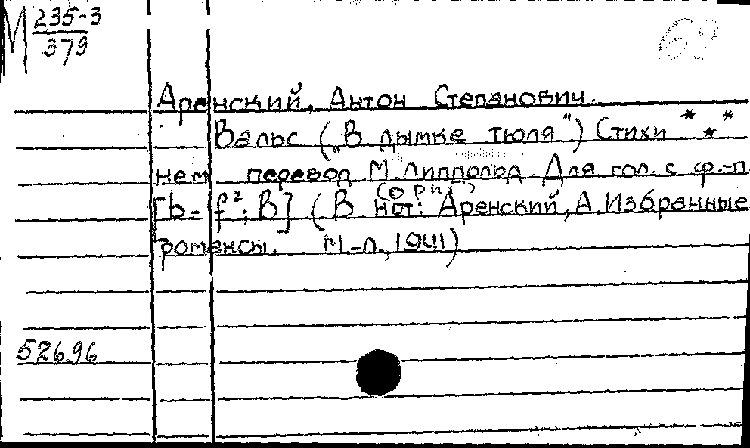 М 235-3
379
Аренский, Антон Степанович.
Вальс („В дымке тюля") Стихи * * *
нем перевод М. Липпольд Для гол. с ф.-п.
(ориг.)
[b- f²; В] (В нот: Аренский, А. Избранные
романсы. М-Л, 1941)
52696